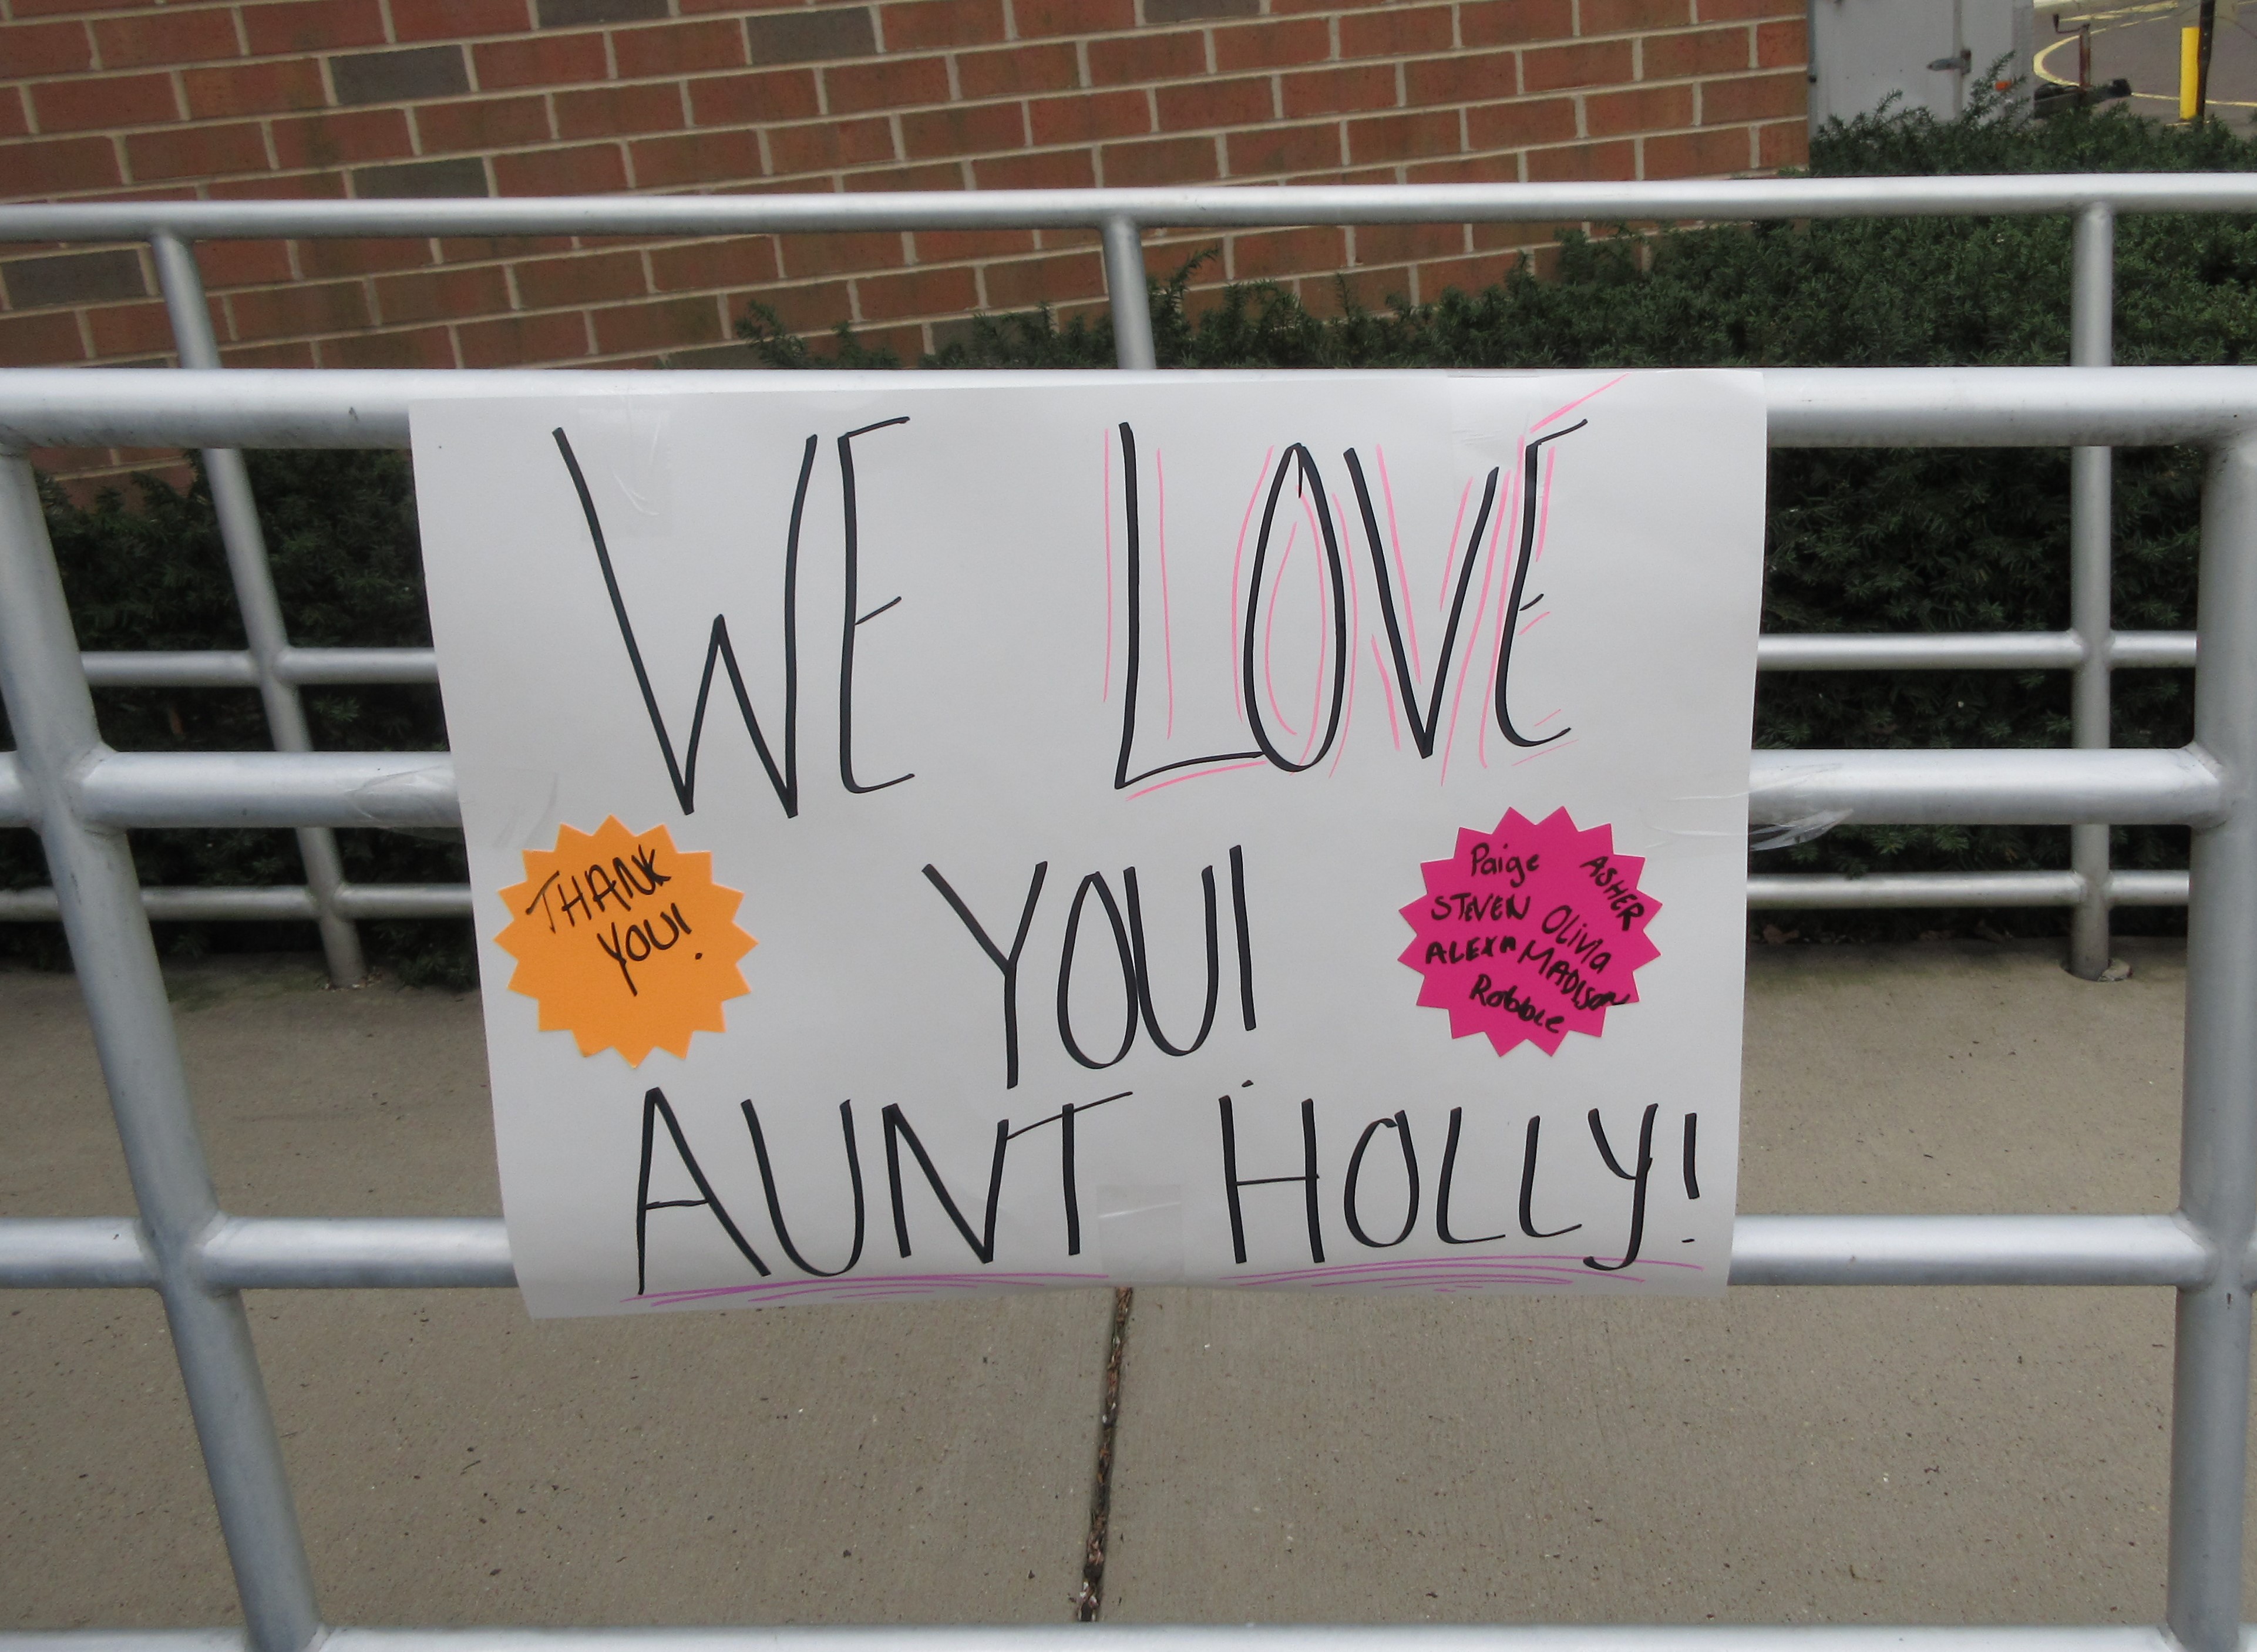 WE LOVE
THANK
YOU!
YOU!
Paige
ASHER
STEVEN
Olivia
ALEXA
MADISON
Robbie
AUNT HOLLY!